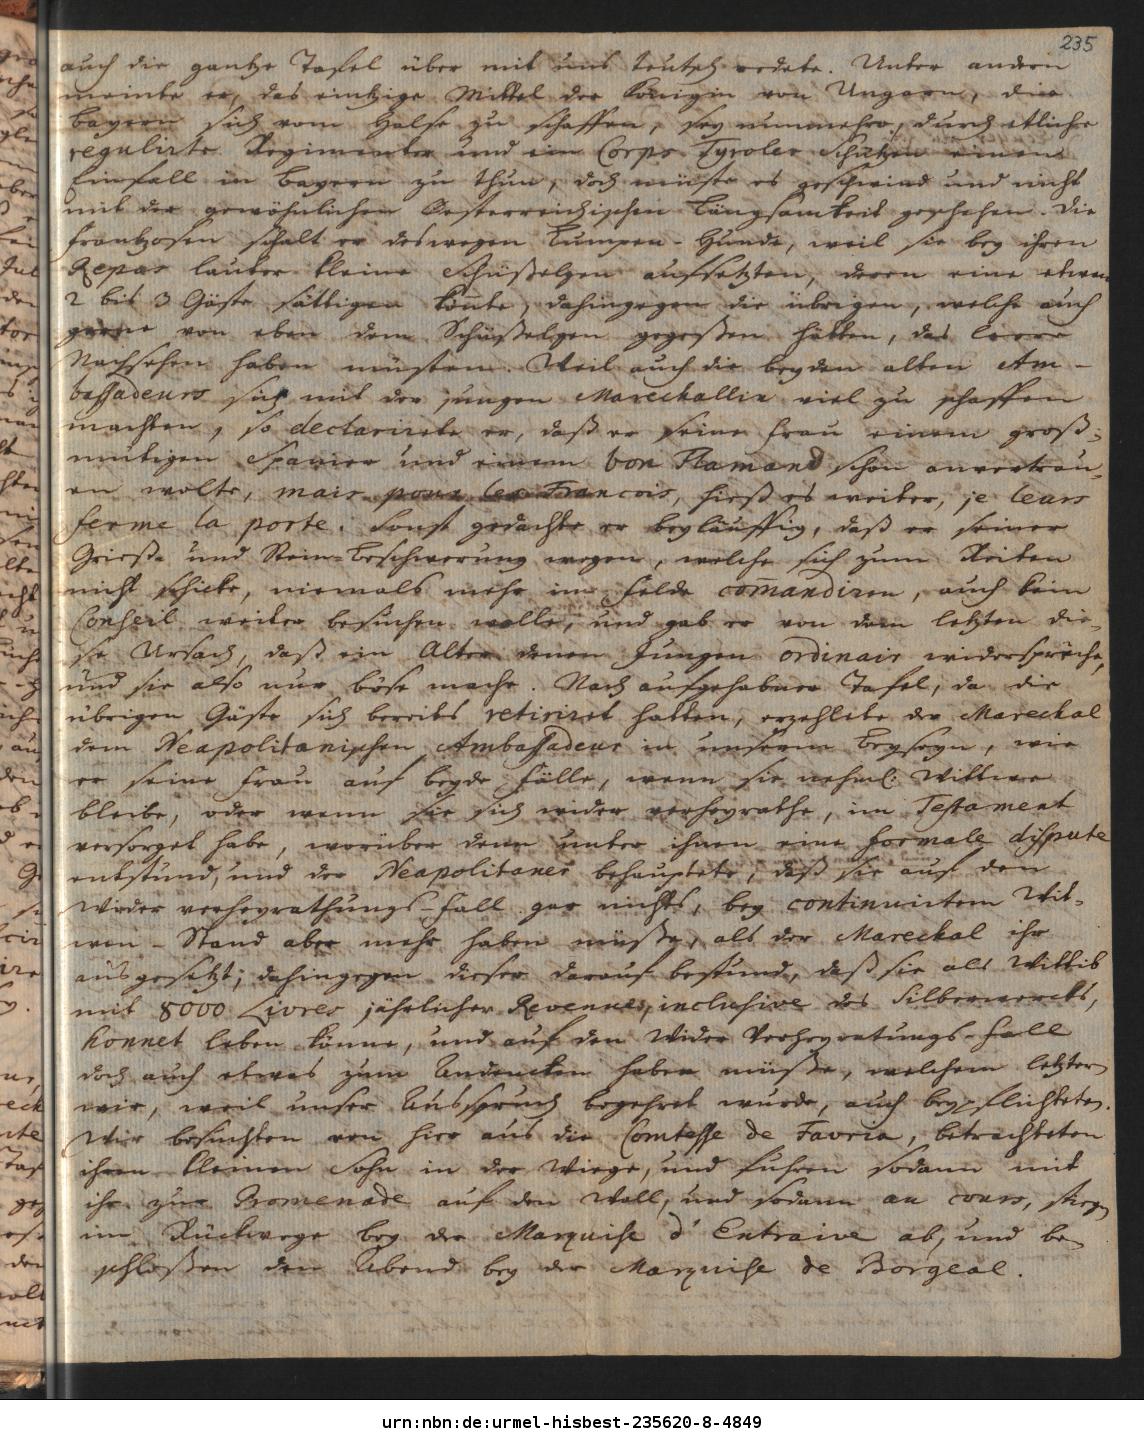 235
auch die gantze Tafel über mit uns teutsch redete. Unter andern
meinte er, das eintzige Mittel der Königin von Ungarn, die
Bayern sich vom Halse zu schaffen, sey nunmehro, durch etliche
regulirte Regimenter und ein Corps Tyroler Schützen einen
Einfall in Bayern zu thun, doch müste es geschwind und nicht
mit der gewöhnlichen Oesterreichischen Langsamkeit geschehen. Die
Frantzosen schalt er deswegen Lumpen-Hunde, weil sie bey ihren
Repas lauter kleine Schüßelgen aufsetzten, deren eine etwan
2 bis 3 Gäste sättigen könte, dahingegen die übrigen, welche auch
gerne von eben dem Schüßelgen gegeßen hätten, das leere
Nachsehen haben müsten. Weil auch die beyden alten Am-
bassadeurs sich mit der jungen Marechallin viel zu schaffen
machten, so declarirete er, daß er seine Frau einem groß-
mütigen Spanier und einem bon Flamand schon anvertrau-
en wolte, mais pour les Francois, hieß es weiter, je leurs
ferme la porte. Sonst gedachte er beyläuffig, daß er seiner
Grieß- und Stein-Beschwerung wegen, welche sich zum Reiten
nicht schicke, niemals mehr im Felde comandiren, auch kein
Conseil weiter besuchen wolle, und gab er von dem letzten die-
se Ursach, daß ein Alter denen Jungen ordinair widerspreche,
und sie also nur böse mache. Nach aufgehabner Tafel, da die
übrigen Gäste sich bereits retiriret hatten, erzehlete der Marechal
dem Neapolitanischen Ambassadeur in unserm Beyseyn, wie
er seine Frau auf beyde Fälle, wenn sie nehml: Wittwe
bleibe, oder wenn sie sich wider verheyrathe, im Testament
versorget habe, worüber denn unter ihnen eine formale dispute
entstund, und der Neapolitaner behauptete, daß sie auf den
Wieder verheyrathungs-Fall gar nichts, bey continuirtem Wit-
wen-Stand aber mehr haben müße, als der Marechal ihr
ausgesetzt; dahingegen dieser darauf bestund, daß sie als Wittib
mit 8000 Livres jährlicher Revenues, inclusive des Silberwercks,
honnet leben könne, und auf den Wider Verheyratungs-Fall
doch auch etwas zum Andencken haben müße, welchem letztern
wir, weil unser Ausspruch begehret wurde, auch beypflichteten.
Wir besuchten von hier aus die Comtesse de Favria, betrachteten
ihren kleinen Sohn in der Wiege, und fuhren sodann mit
ihr zur Promenade auf den Wall, und sodann au cours, stiegen
im Rückwege bey der Marquise d'Entraive ab, und be-
schloßen den Abend bey der Marquise de Borgeal.
urn:nbn:de:urmel-hisbest-235620-8-4849